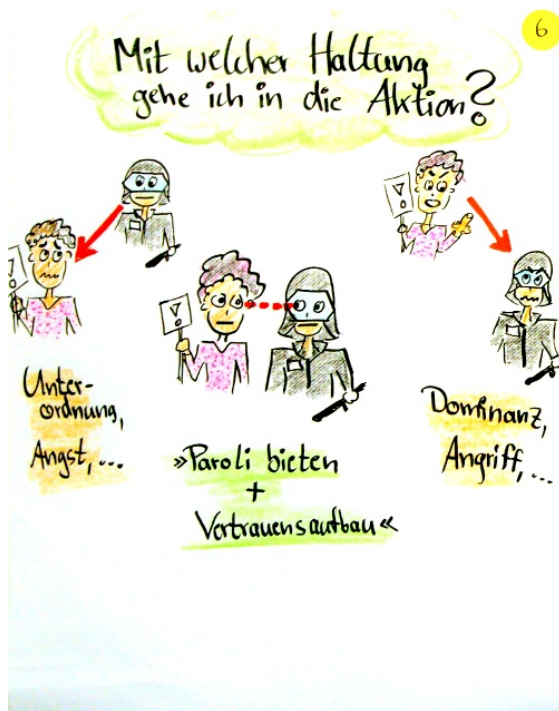 6
Mit welcher Haltung
gehe ich in die Aktion?
!
!
!
Unter-
ordnung,
Angst,...
»Paroli bieten
+
Vertrauensaufbau«
Dominanz,
Angriff,...